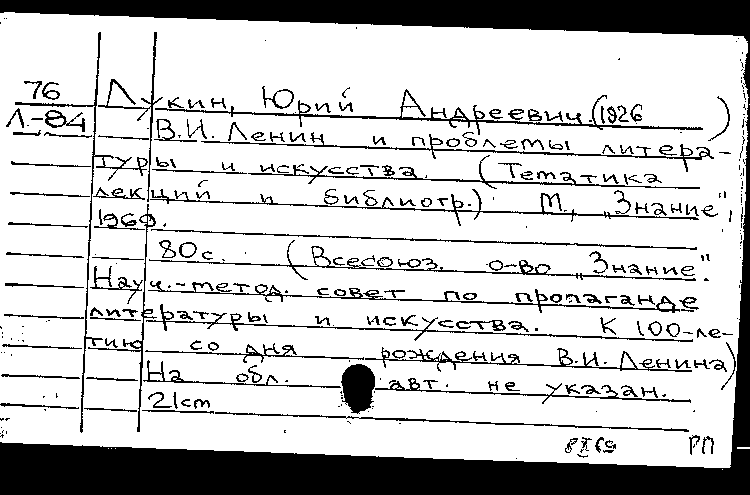 76 Лукин, Юрий Андреевич. (1926 )
Л-84 В.И. Ленин и проблемы литера-
туры и искусства. (Тематика
лекций и библиогр.) М, „Знание",
1969.
80с. (Всесоюз. о-во „Знание".
Науч.-метод. совет по пропаганде
литературы и искусства. К 100-ле-
тию со дня рождения В.И. Ленина)
На обл. авт. не указан.
21cm
РП